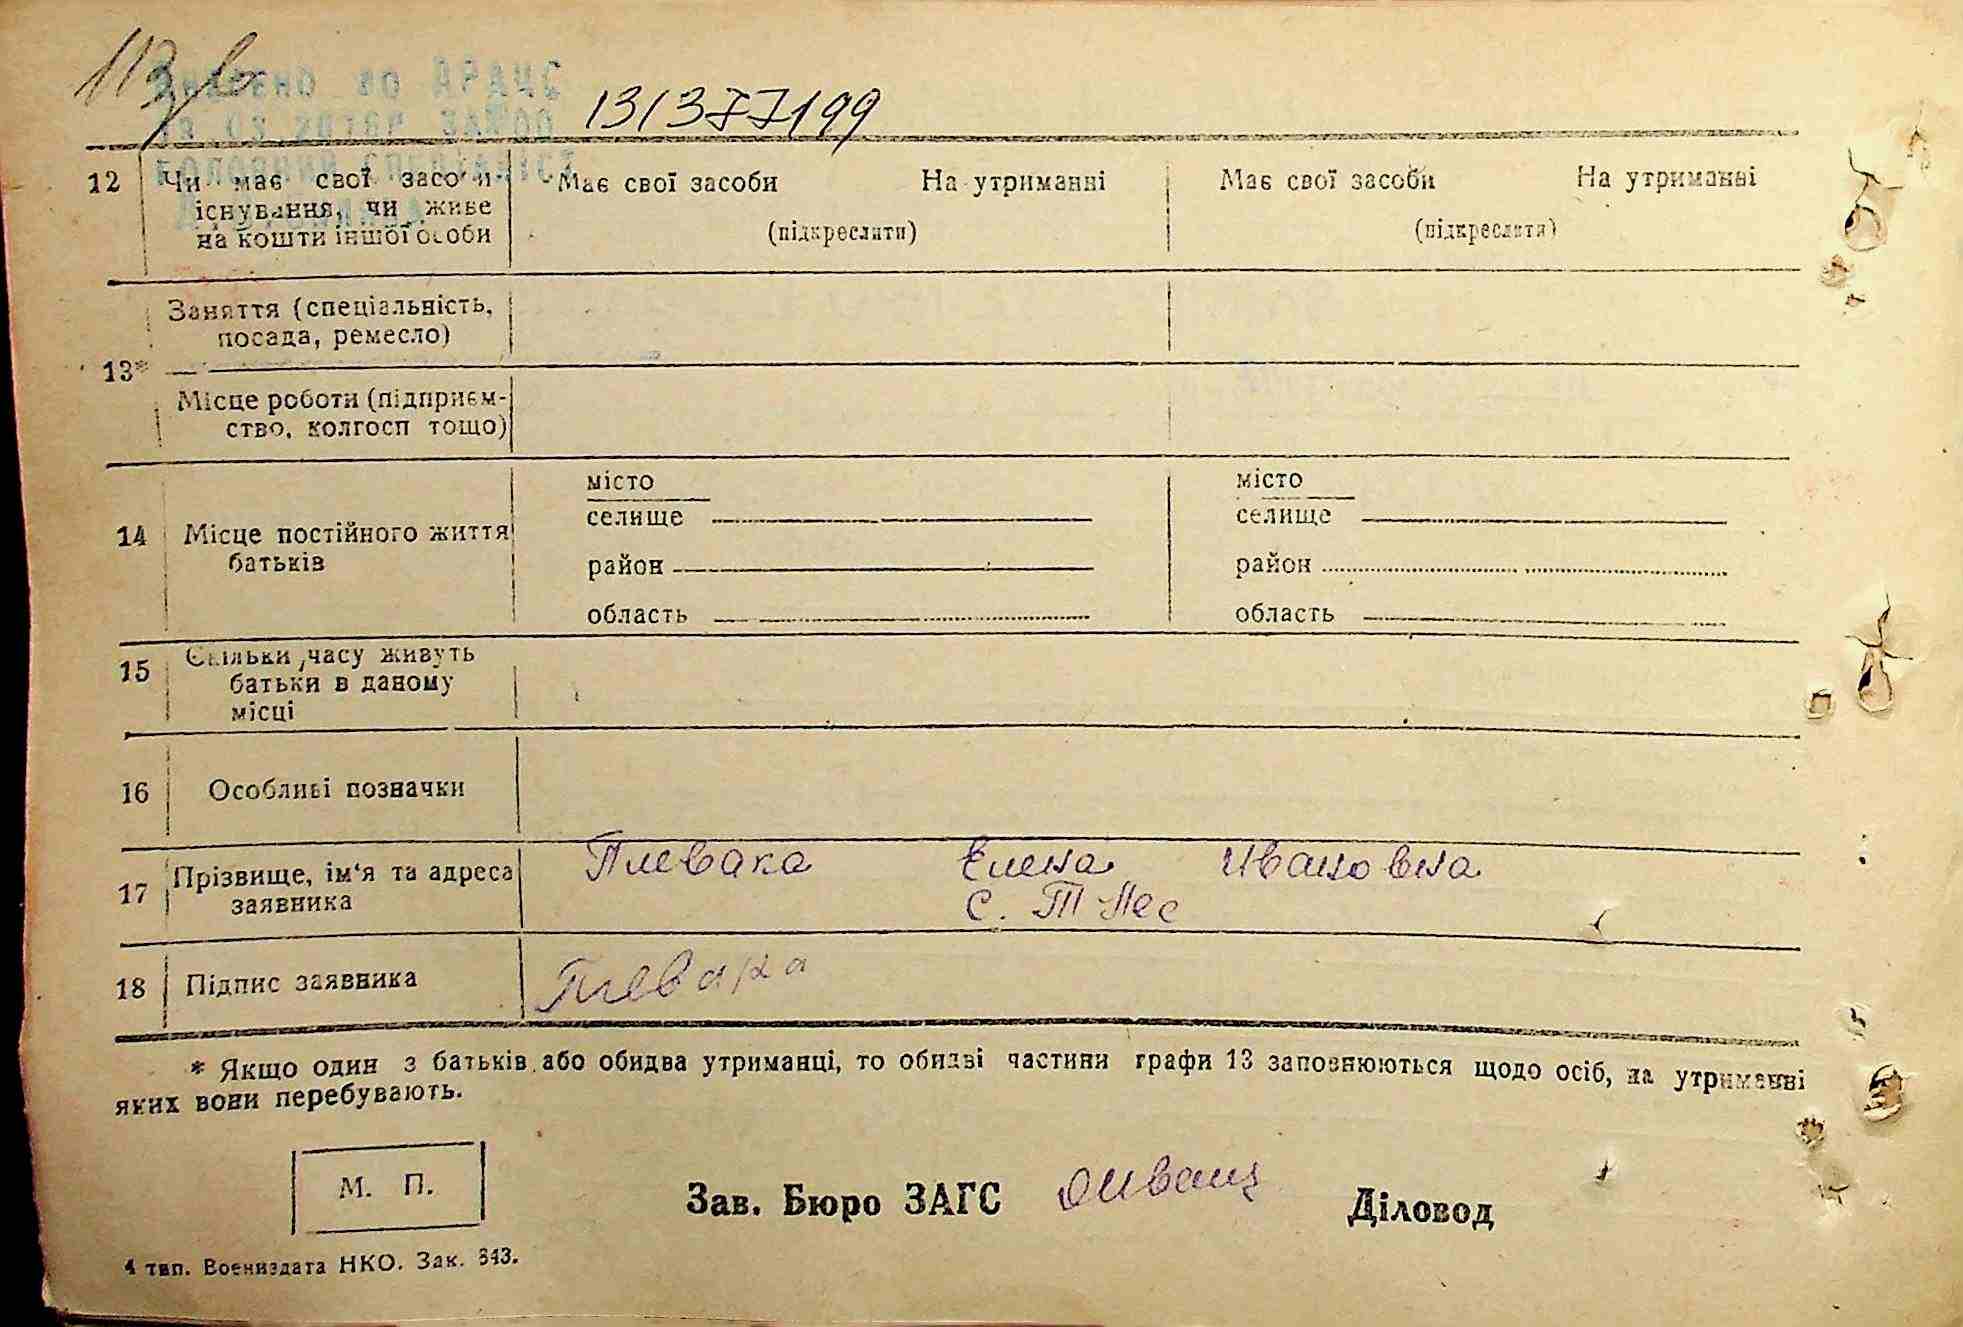 113
Внесено до ДРАЦС
131377199
головний спеціаліст
12 Чи має свої засоби Має свої засоби На утриманні Має свої засоби На утриманні
існування, чи живе
на кошти іншої особи (підкреслити) (підкреслити)
Заняття (спеціальність,
посада, ремесло)
13*
Місце роботи (підприєм-
ство, колгосп тощо)
місто місто
селище селище
14 Місце постійного життя
батьків
район район
область область
15 Скільки часу живуть
батьки в даному
місці
16 Особливі позначки
17 Прізвище, ім'я та адреса Плевака Елена Ивановна
заявника с. Т-Лес
18 Підпис заявника Плевака
* Якщо один з батьків або обидва утриманці, то обидві частини графи 13 заповнюються щодо осіб, на утриманні
яких вони перебувають.
М. П.
Зав. Бюро ЗАГС Діловод
4 тип. Воениздата НКО. Зак. 343.